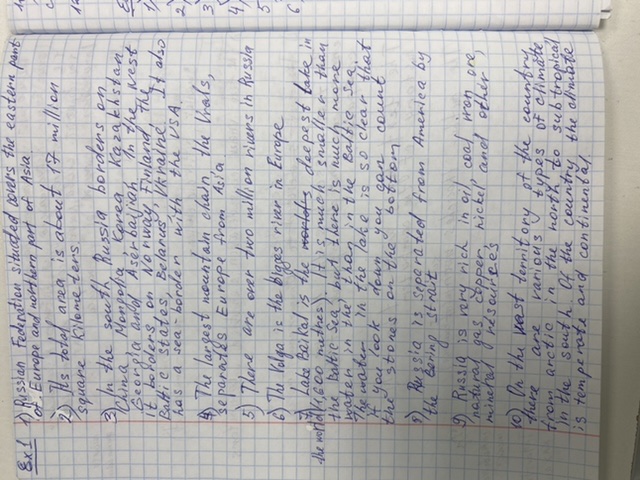 Ex 1 1) Russian Federation situated covers the eastern part
of Europe and northern part of Asia.
2) Its total area is about 17 million
square kilometers
3) In the south Russia borders on
China, Mongolia, Korea, Kazakhstan,
Georgia and Aserbaijan. In the west
it borders on Norway, Finland, the
Baltic states, Belarus, Ukraine. It also
has a sea-border with the USA
4) The largest mountain chain, the Urals,
separates Europe from Asia
5) There are over two million rivers in Russia
6) The Volga is the bigges river in Europe
7) Lake Baikal is the deepest lake in
the world (1600 methes). It is much smaller than
the Baltic Sea, but there is much more
water in the than in the Baltic Sea.
The water in the lake is so clear that
if you look down you can count
the stones on the bottom.
8) Russia is seperated from America by
the Bering strait
9) Russia is very rich in oil, coal, iron ore,
natural gas, copper, nickel, and other
mineral resources
10) On the vast territory of the country
there are various types of climate
from arctic in the north to subtropical
in the south. Of the country the climate
is temperate and continental.